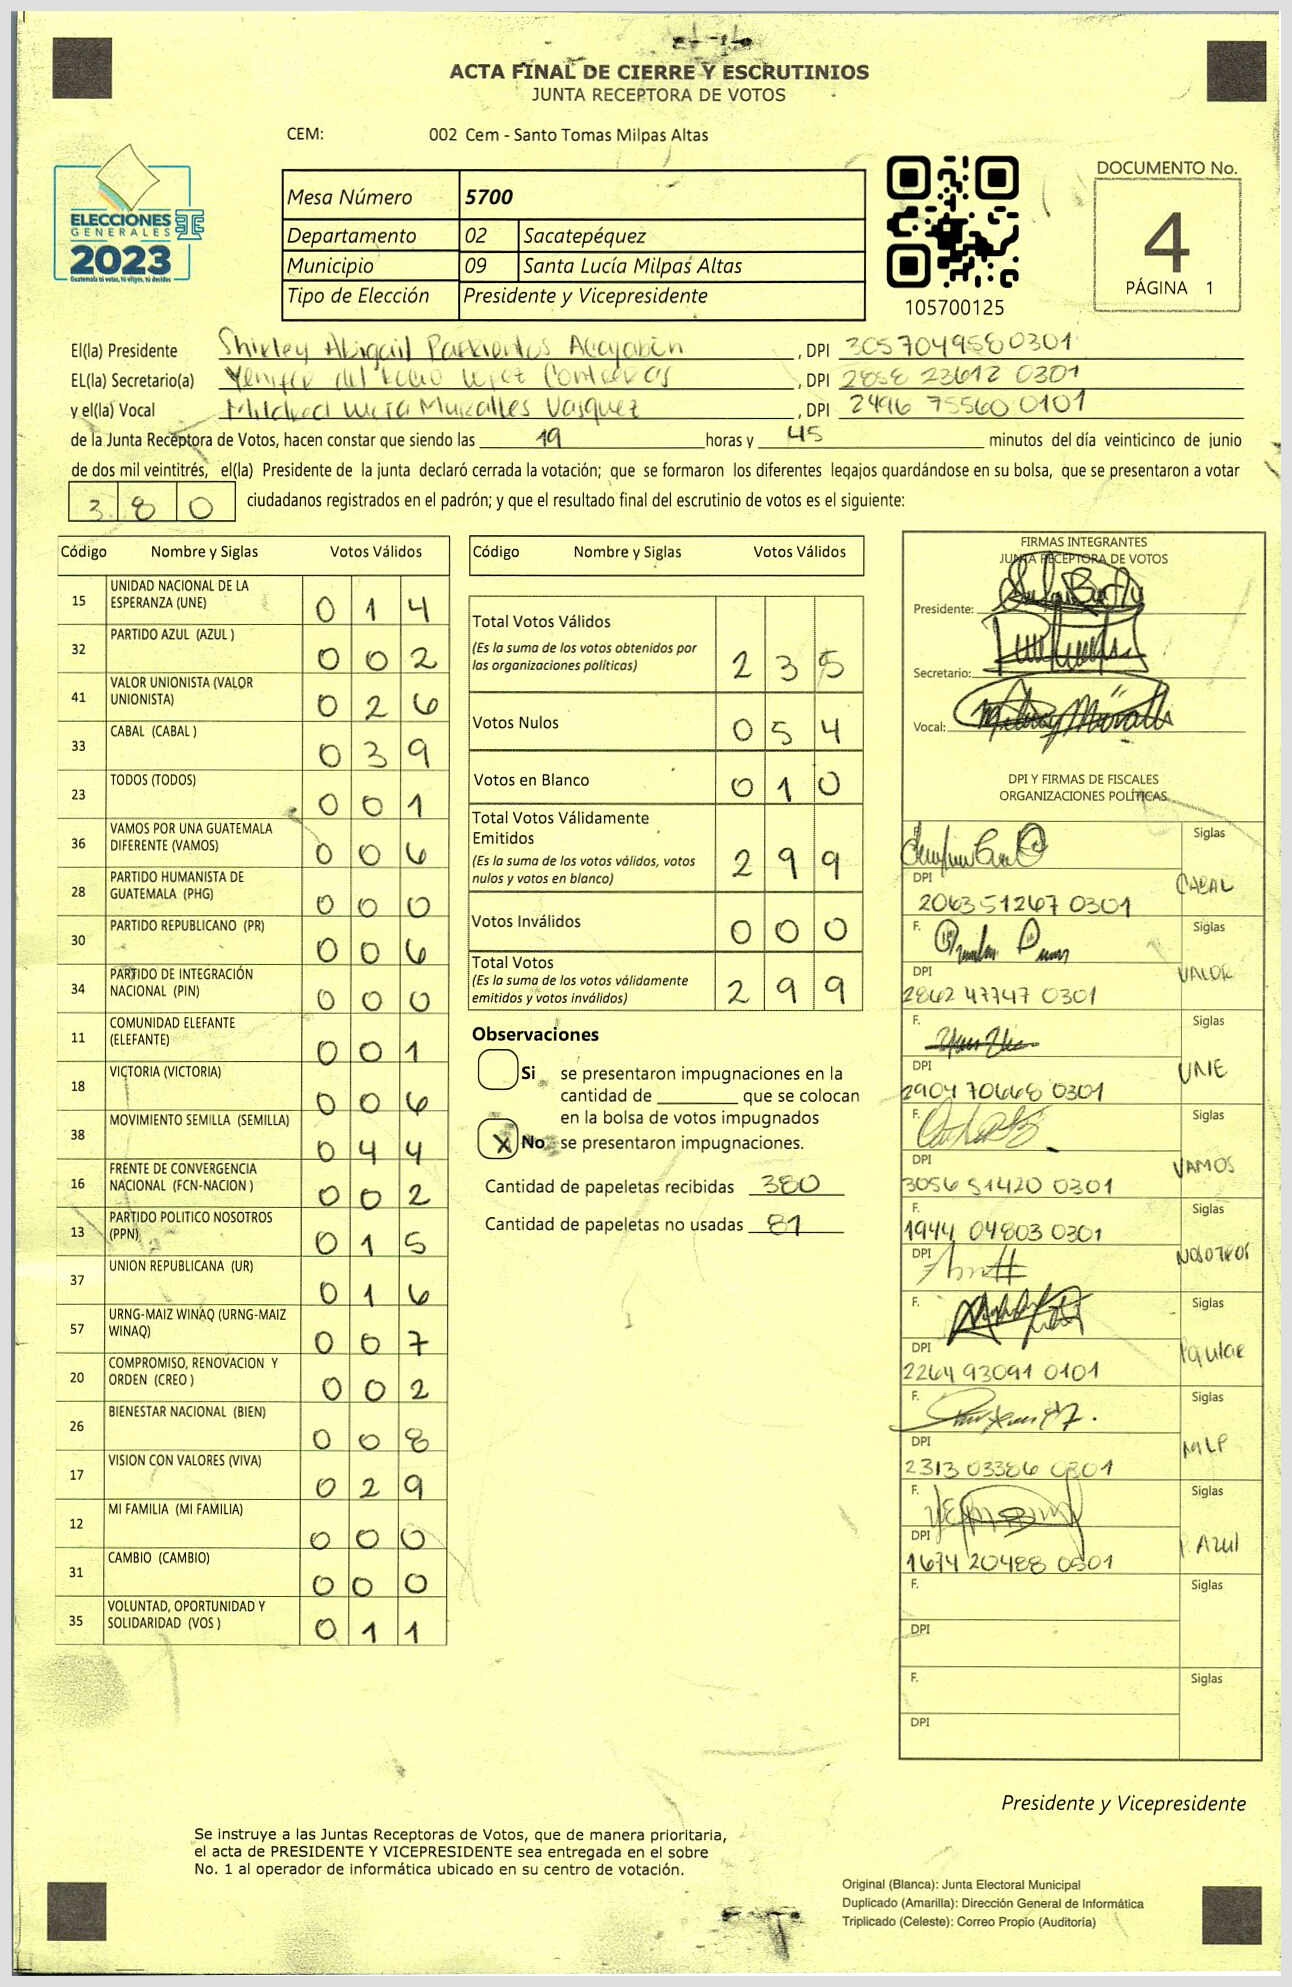 ACTA FINAL DE CIERRE Y ESCRUTINIOS
JUNTA RECEPTORA DE VOTOS
CEM: 002 Cem - Santo Tomas Milpas Altas
ELECCIONES
GENERALES
2023
Guatemala tú votas, tú eliges, tú decides
Mesa Número 5700
Departamento 02 Sacatepéquez
Municipio 09 Santa Lucía Milpas Altas
Tipo de Elección Presidente y Vicepresidente
105700125
DOCUMENTO No.
4
PÁGINA 1
El(la) Presidente Shirley Abigail Barrientos , DPI 305704958 0301
EL(la) Secretario(a) Yenifer del Rocio Lopez Contreras , DPI 2858 23612 0301
y el(la) Vocal Mildred Lucia Muralles Vasquez , DPI 2496 75560 0101
de la Junta Receptora de Votos, hacen constar que siendo las 19 horas y 45 minutos del día veinticinco de junio
de dos mil veintitrés, el(la) Presidente de la junta declaró cerrada la votación; que se formaron los diferentes legajos guardándose en su bolsa, que se presentaron a votar
380 ciudadanos registrados en el padrón; y que el resultado final del escrutinio de votos es el siguiente:
Código Nombre y Siglas Votos Válidos
15 UNIDAD NACIONAL DE LA ESPERANZA (UNE) 014
32 PARTIDO AZUL (AZUL ) 002
41 VALOR UNIONISTA (VALOR UNIONISTA) 026
33 CABAL (CABAL ) 039
23 TODOS (TODOS) 001
36 VAMOS POR UNA GUATEMALA DIFERENTE (VAMOS) 006
28 PARTIDO HUMANISTA DE GUATEMALA (PHG) 000
30 PARTIDO REPUBLICANO (PR) 006
34 PARTIDO DE INTEGRACIÓN NACIONAL (PIN) 000
11 COMUNIDAD ELEFANTE (ELEFANTE) 001
18 VICTORIA (VICTORIA) 006
38 MOVIMIENTO SEMILLA (SEMILLA) 044
16 FRENTE DE CONVERGENCIA NACIONAL (FCN-NACION ) 002
13 PARTIDO POLITICO NOSOTROS (PPN) 015
37 UNION REPUBLICANA (UR) 016
57 URNG-MAIZ WINAQ (URNG-MAIZ WINAQ) 007
20 COMPROMISO, RENOVACION Y ORDEN (CREO ) 002
26 BIENESTAR NACIONAL (BIEN) 008
17 VISION CON VALORES (VIVA) 029
12 MI FAMILIA (MI FAMILIA) 000
31 CAMBIO (CAMBIO) 000
35 VOLUNTAD, OPORTUNIDAD Y SOLIDARIDAD (VOS ) 011
Código Nombre y Siglas Votos Válidos
Total Votos Válidos
(Es la suma de los votos obtenidos por las organizaciones políticas) 235
Votos Nulos 054
Votos en Blanco 010
Total Votos Válidamente Emitidos
(Es la suma de los votos válidos, votos nulos y votos en blanco) 299
Votos Inválidos 000
Total Votos
(Es la suma de los votos válidamente emitidos y votos inválidos) 299
Observaciones
Si se presentaron impugnaciones en la
cantidad de ________ que se colocan
en la bolsa de votos impugnados
X No se presentaron impugnaciones.
Cantidad de papeletas recibidas 380
Cantidad de papeletas no usadas 81
FIRMAS INTEGRANTES
JUNTA RECEPTORA DE VOTOS
Presidente:
Secretario:
Vocal:
DPI Y FIRMAS DE FISCALES
ORGANIZACIONES POLÍTICAS
F. Siglas
DPI CABAL
2063 51267 0301
F. Siglas
DPI VALOR
2862 47747 0301
F. Siglas
DPI UNE
2904 70668 0301
F. Siglas
DPI VAMOS
3056 51420 0301
F. Siglas
1944 04803 0301
DPI NOSOTROS
F. Siglas
DPI
2264 93091 0101
F. Siglas
DPI MLP
2313 03386 0301
F. Siglas
DPI P. Azul
1674 20488 0301
F. Siglas
DPI
F. Siglas
DPI
Presidente y Vicepresidente
Se instruye a las Juntas Receptoras de Votos, que de manera prioritaria,
el acta de PRESIDENTE Y VICEPRESIDENTE sea entregada en el sobre
No. 1 al operador de informática ubicado en su centro de votación.
Original (Blanca): Junta Electoral Municipal
Duplicado (Amarilla): Dirección General de Informática
Triplicado (Celeste): Correo Propio (Auditoría)